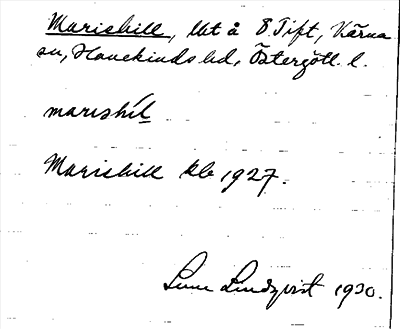 Marishill, lht å 8 Tift, Kärna
sn, Hanekinds hd, Östergötl. l.
marishil
Marishill kb 1927.
Sune Lindqvist 1930.